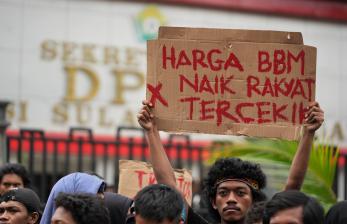 SEKRE
DP
SI SULA
HARGA BBM
X NAIK RAKYAT
TERCEKIK